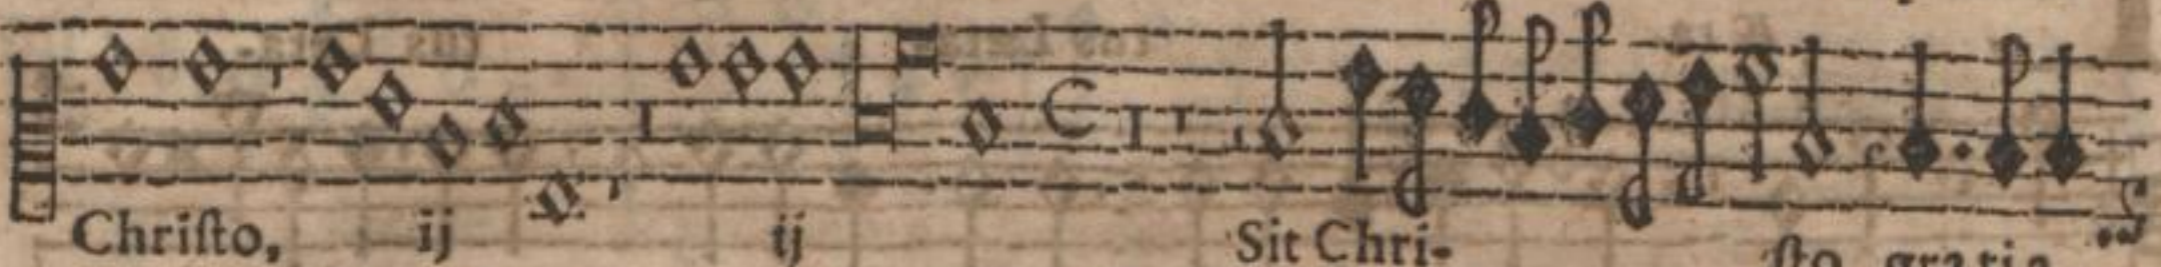 Chriſto, ij ij Sit Chri- ſto gratia